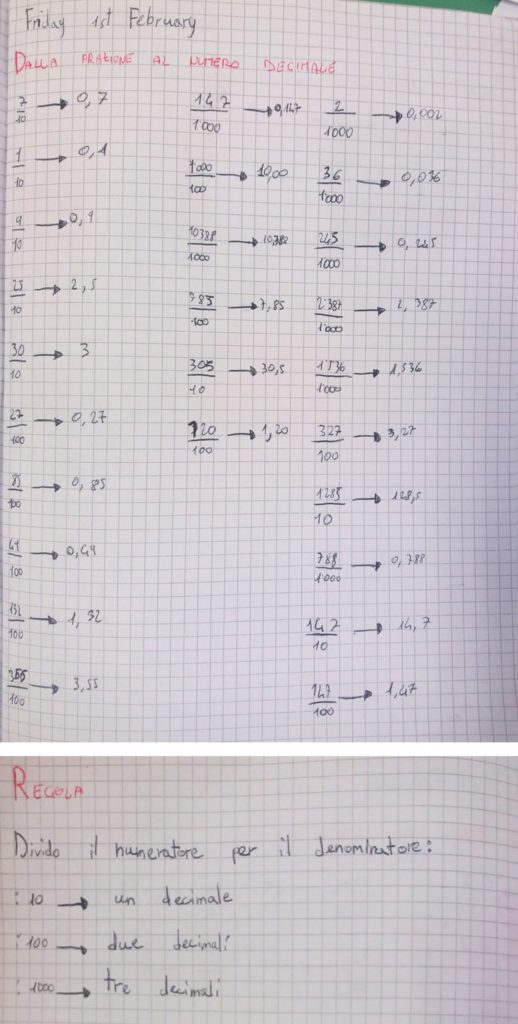 Friday 1st February
DALLA FRAZIONE AL NUMERO DECIMALE
7/10 → 0,7
1/10 → 0,1
9/10 → 0,9
25/10 → 2,5
30/10 → 3
27/100 → 0,27
85/100 → 0,85
132/100 → 1,32
355/100 → 3,55
147/1000 → 0,147
1000/100 → 10,00
10388/1000 → 10,388
785/100 → 7,85
305/10 → 30,5
120/100 → 1,20
2/1000 → 0,002
36/1000 → 0,036
245/1000 → 0,245
2387/1000 → 2,387
1536/1000 → 1,536
327/100 → 3,27
1285/10 → 128,5
788/1000 → 0,788
147/10 → 14,7
147/100 → 1,47
REGOLA
Divido il numeratore per il denominatore:
: 10 → un decimale
: 100 → due decimali
: 1000 → tre decimali